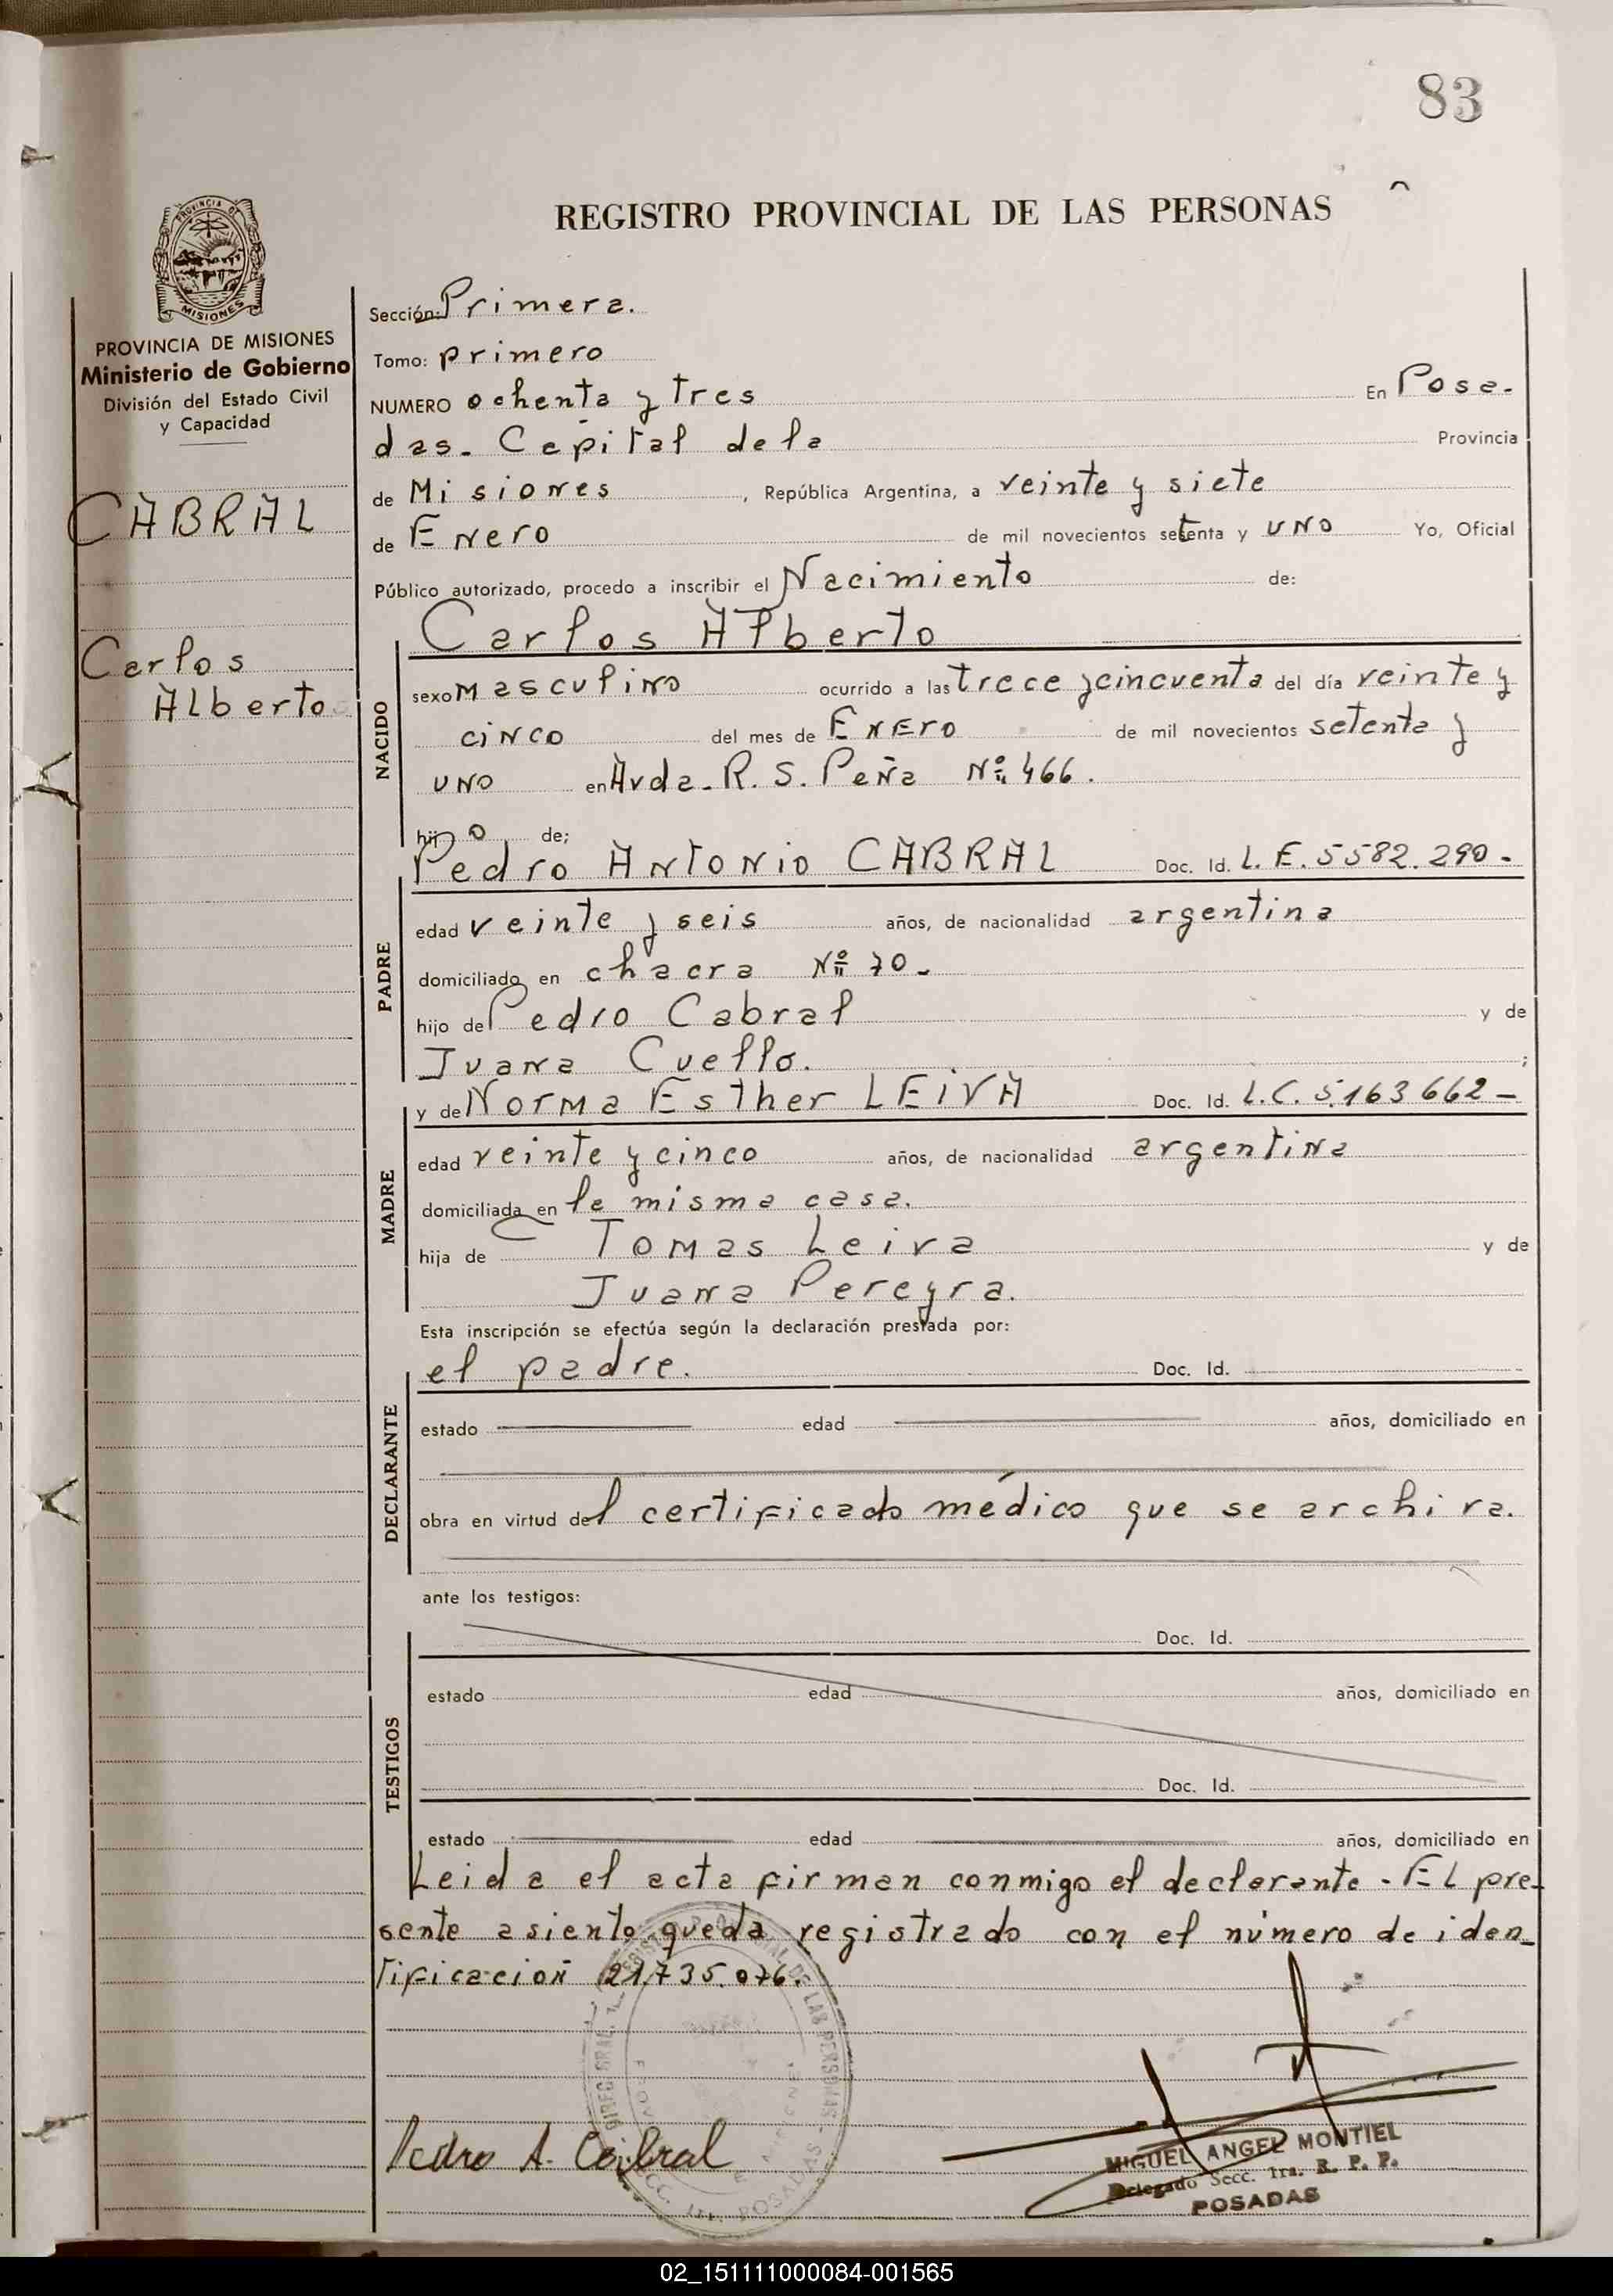 83
REGISTRO PROVINCIAL DE LAS PERSONAS
PROVINCIA DE
MISIONES
PROVINCIA DE MISIONES
Ministerio de Gobierno
División del Estado Civil
y Capacidad
CABRAL
Carlos
Alberto
Sección: Primera.
Tomo: primero
NUMERO ochenta y tres En Posa-
das. Capital de la Provincia
de Misiones, República Argentina, a veinte y siete
de Enero de mil novecientos setenta y uno Yo, Oficial
Público autorizado, procedo a inscribir el Nacimiento de:
Carlos Alberto
NACIDO
sexo masculino ocurrido a las trece y cincuenta del día veinte y
cinco del mes de Enero de mil novecientos setenta y
uno en Avda. R. S. Peña Nº 466.
hijo de;
Pedro Antonio CABRAL Doc. Id. L. E. 5582.290-
PADRE
edad veinte y seis años, de nacionalidad argentina
domiciliado en chacra Nº 70-
hijo de Pedro Cabral y de
Juana Cuello. ;
y de Norma Esther LEIVA Doc. Id. L.C. 5.163662-
MADRE
edad veinte y cinco años, de nacionalidad argentina
domiciliada en la misma casa.
hija de Tomas Leiva y de
Juana Pereyra.
Esta inscripción se efectúa según la declaración prestada por:
el padre. Doc. Id.
DECLARANTE
estado edad años, domiciliado en
obra en virtud del certificado médico que se archiva.
ante los testigos:
Doc. Id.
TESTIGOS
estado edad años, domiciliado en
Doc. Id.
estado edad años, domiciliado en
Leida el acta firman conmigo el declarante. El pre-
sente asiento queda registrado con el número de iden-
tificacion 21.735.076.
DE LAS PERSONAS
POSADAS
Pedro A. Cabral
MIGUEL ANGEL MONTIEL
Delegado Secc. 1ra. R. P. P.
POSADAS
02_151111000084-001565